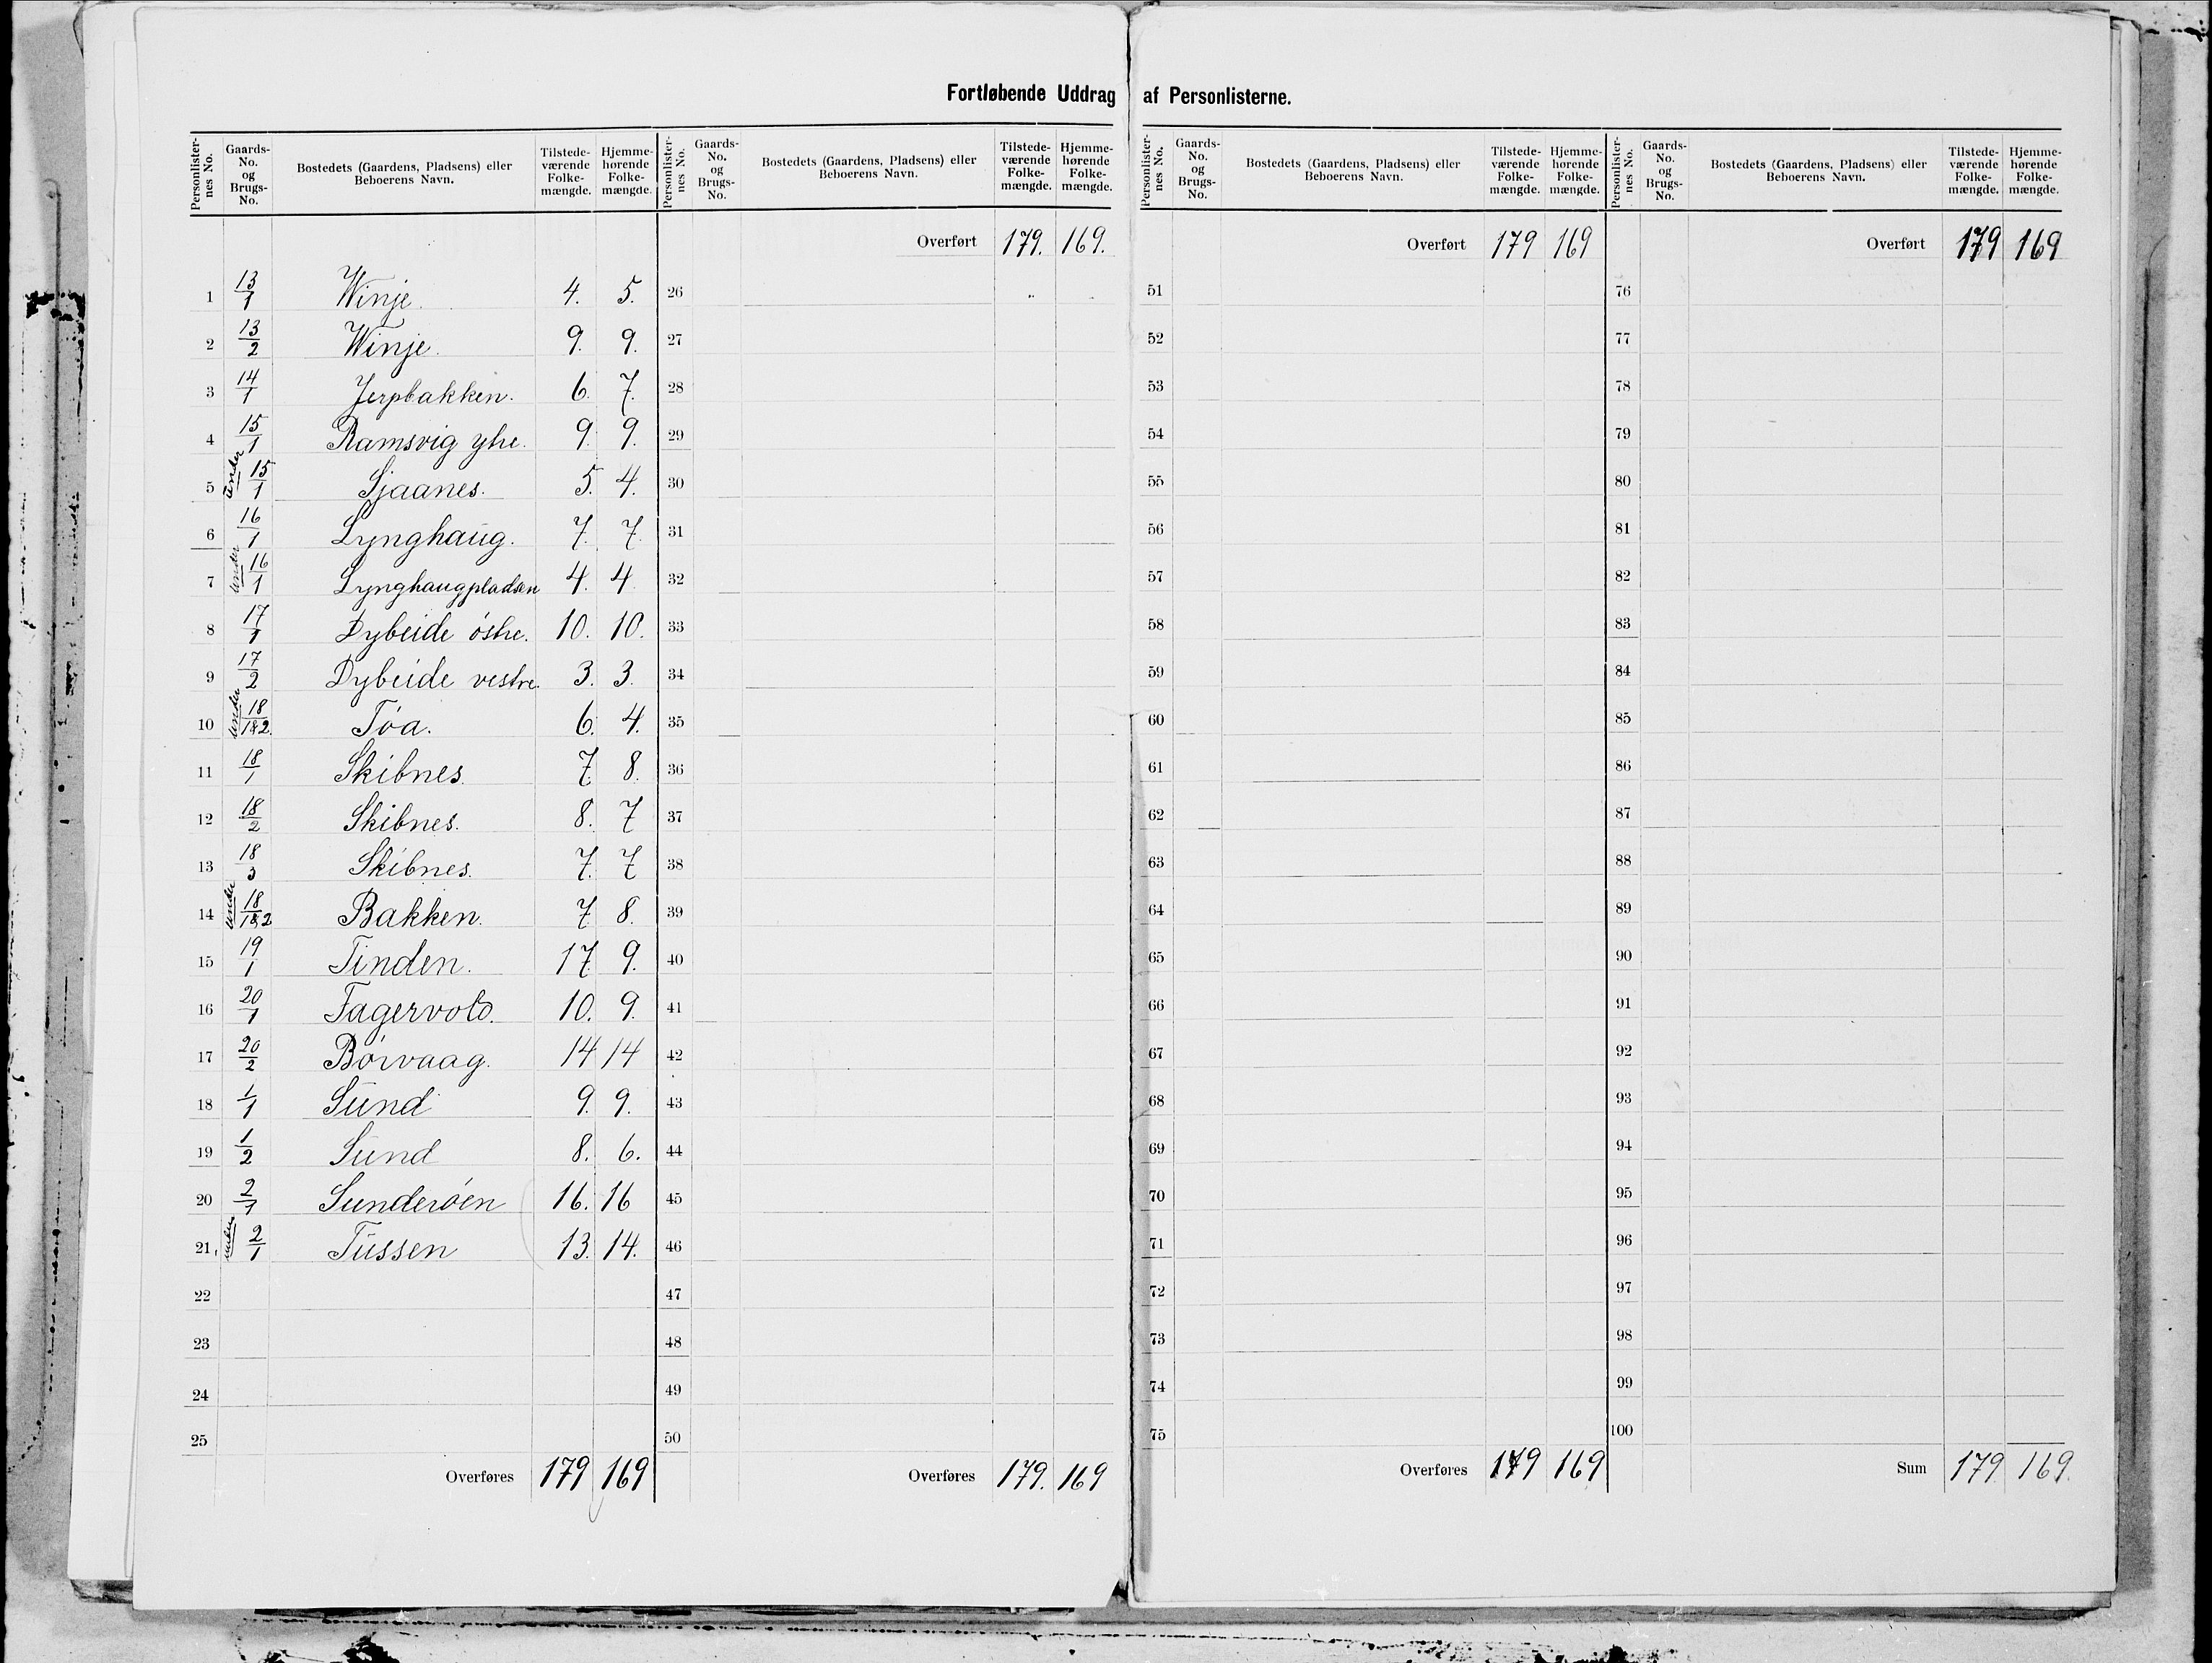 Fortløbende Uddrag af Personlisterne.
Personlisternes No. Gaards-No. og Brugs-No. Bostedets (Gaardens, Pladsens) eller Beboerens Navn. Tilstedeværende Folkemængde. Hjemmehørende Folkemængde.
1 13/1 Winje. 4. 5.
2 13/2 Winje. 9. 9.
3 14/1 Jerpbakken. 6. 7.
4 15/1 Ramsvig ytre. 9. 9.
5 under 15/1 Sjaanes. 5. 4.
6 16/1 Lynghaug. 7. 7.
7 under 16/1 Lynghaugpladsen 4. 4
8 17/1 Dybeide östre. 10. 10.
9 17/2 Dybeide vestre. 3. 3.
10 under 18/1&2. Töa. 6. 4.
11 18/1 Skibnes. 7 8.
12 18/2 Skibnes. 8. 7
13 18/3 Skibnes. 7. 7
14 under 18/1&2 Bakken. 7 8.
15 19/1 Tinden. 17. 9.
16 20/1 Fagervold. 10. 9.
17 20/2 Börvaag. 14 14
18 1/1 Sund 9. 9.
19 1/2 Sund 8. 6.
20 2/1 Sunderöen 16. 16
21 under 2/1 Tussen 13. 14.
22
23
24
25
Overføres 179 169
Personlisternes No. Gaards-No. og Brugs-No. Bostedets (Gaardens, Pladsens) eller Beboerens Navn. Tilstedeværende Folkemængde. Hjemmehørende Folkemængde.
Overført 179. 169.
26
27
28
29
30
31
32
33
34
35
36
37
38
39
40
41
42
43
44
45
46
47
48
49
50
Overføres 179. 169
Personlisternes No. Gaards-No. og Brugs-No. Bostedets (Gaardens, Pladsens) eller Beboerens Navn. Tilstedeværende Folkemængde. Hjemmehørende Folkemængde.
Overført 179 169
51
52
53
54
55
56
57
58
59
60
61
62
63
64
65
66
67
68
69
70
71
72
73
74
75
Overføres 179 169
Personlisternes No. Gaards-No. og Brugs-No. Bostedets (Gaardens, Pladsens) eller Beboerens Navn. Tilstedeværende Folkemængde. Hjemmehørende Folkemængde.
Overført 179 169
76
77
78
79
80
81
82
83
84
85
86
87
88
89
90
91
92
93
94
95
96
97
98
99
100
Sum 179 169.